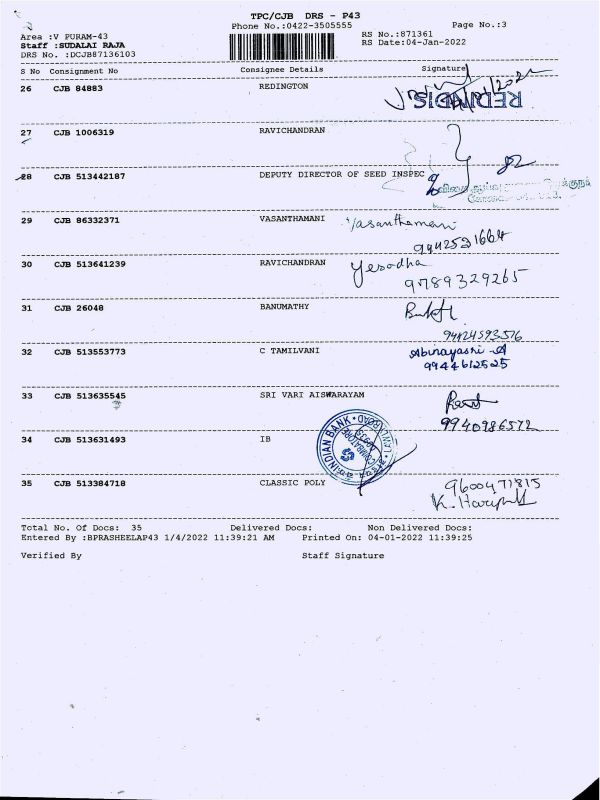 TPC/CJB DRS - P43
Phone No.:0422-3505555
Page No.:3
Area :V PURAM-43
RS No.:871361
Staff :SUDALAI RAJA
RS Date:04-Jan-2022
DRS No. :DCJB87136103
S No Consignment No Consignee Details Signature
26 CJB 84883 REDINGTON
27 CJB 1006319 RAVICHANDRAN
28 CJB 513442187 DEPUTY DIRECTOR OF SEED INSPEC
29 CJB 86332371 VASANTHAMANI Vasanthamani
9942521664
30 CJB 513641239 RAVICHANDRAN Yesodha
9789329265
31 CJB 26048 BANUMATHY
94424593576
32 CJB 513553773 C TAMILVANI Abinayasri -A
9944612525
33 CJB 513635545 SRI VARI AISWARAYAM
9940986572
34 CJB 513631493 IB
INDIAN BANK
COIMBATORE
35 CJB 513384718 CLASSIC POLY 9600471815
Total No. Of Docs: 35 Delivered Docs: Non Delivered Docs:
Entered By :BPRASHEELAP43 1/4/2022 11:39:21 AM Printed On: 04-01-2022 11:39:25
Verified By Staff Signature